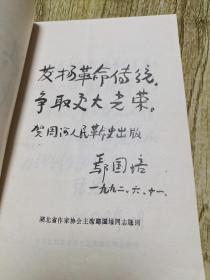 发扬革命传统，
争取更大光荣。
贺国河人民革命史出版
鄢国培
一九九二.六.十一.
湖北省作家协会主席鄢国培同志题词